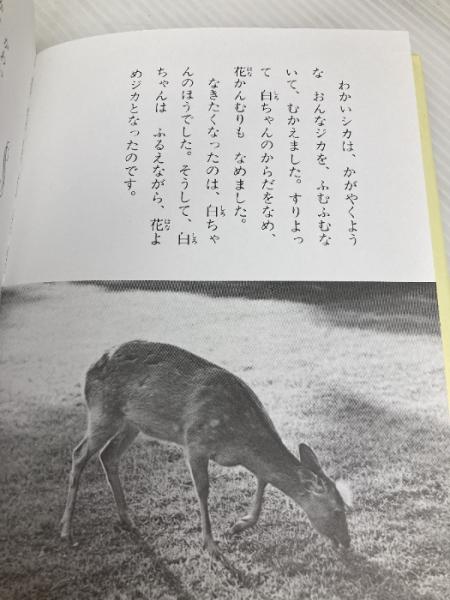 わかいシカは、かがやくよう
な おんなジカを、ふむふむな
いて、むかえました。すりよっ
て 白ちゃんのからだをなめ、
花かんむりも なめました。
なきたくなったのは、白ちゃ
んのほうでした。そうして、白
ちゃんは ふるえながら、花よ
めジカとなったのです。